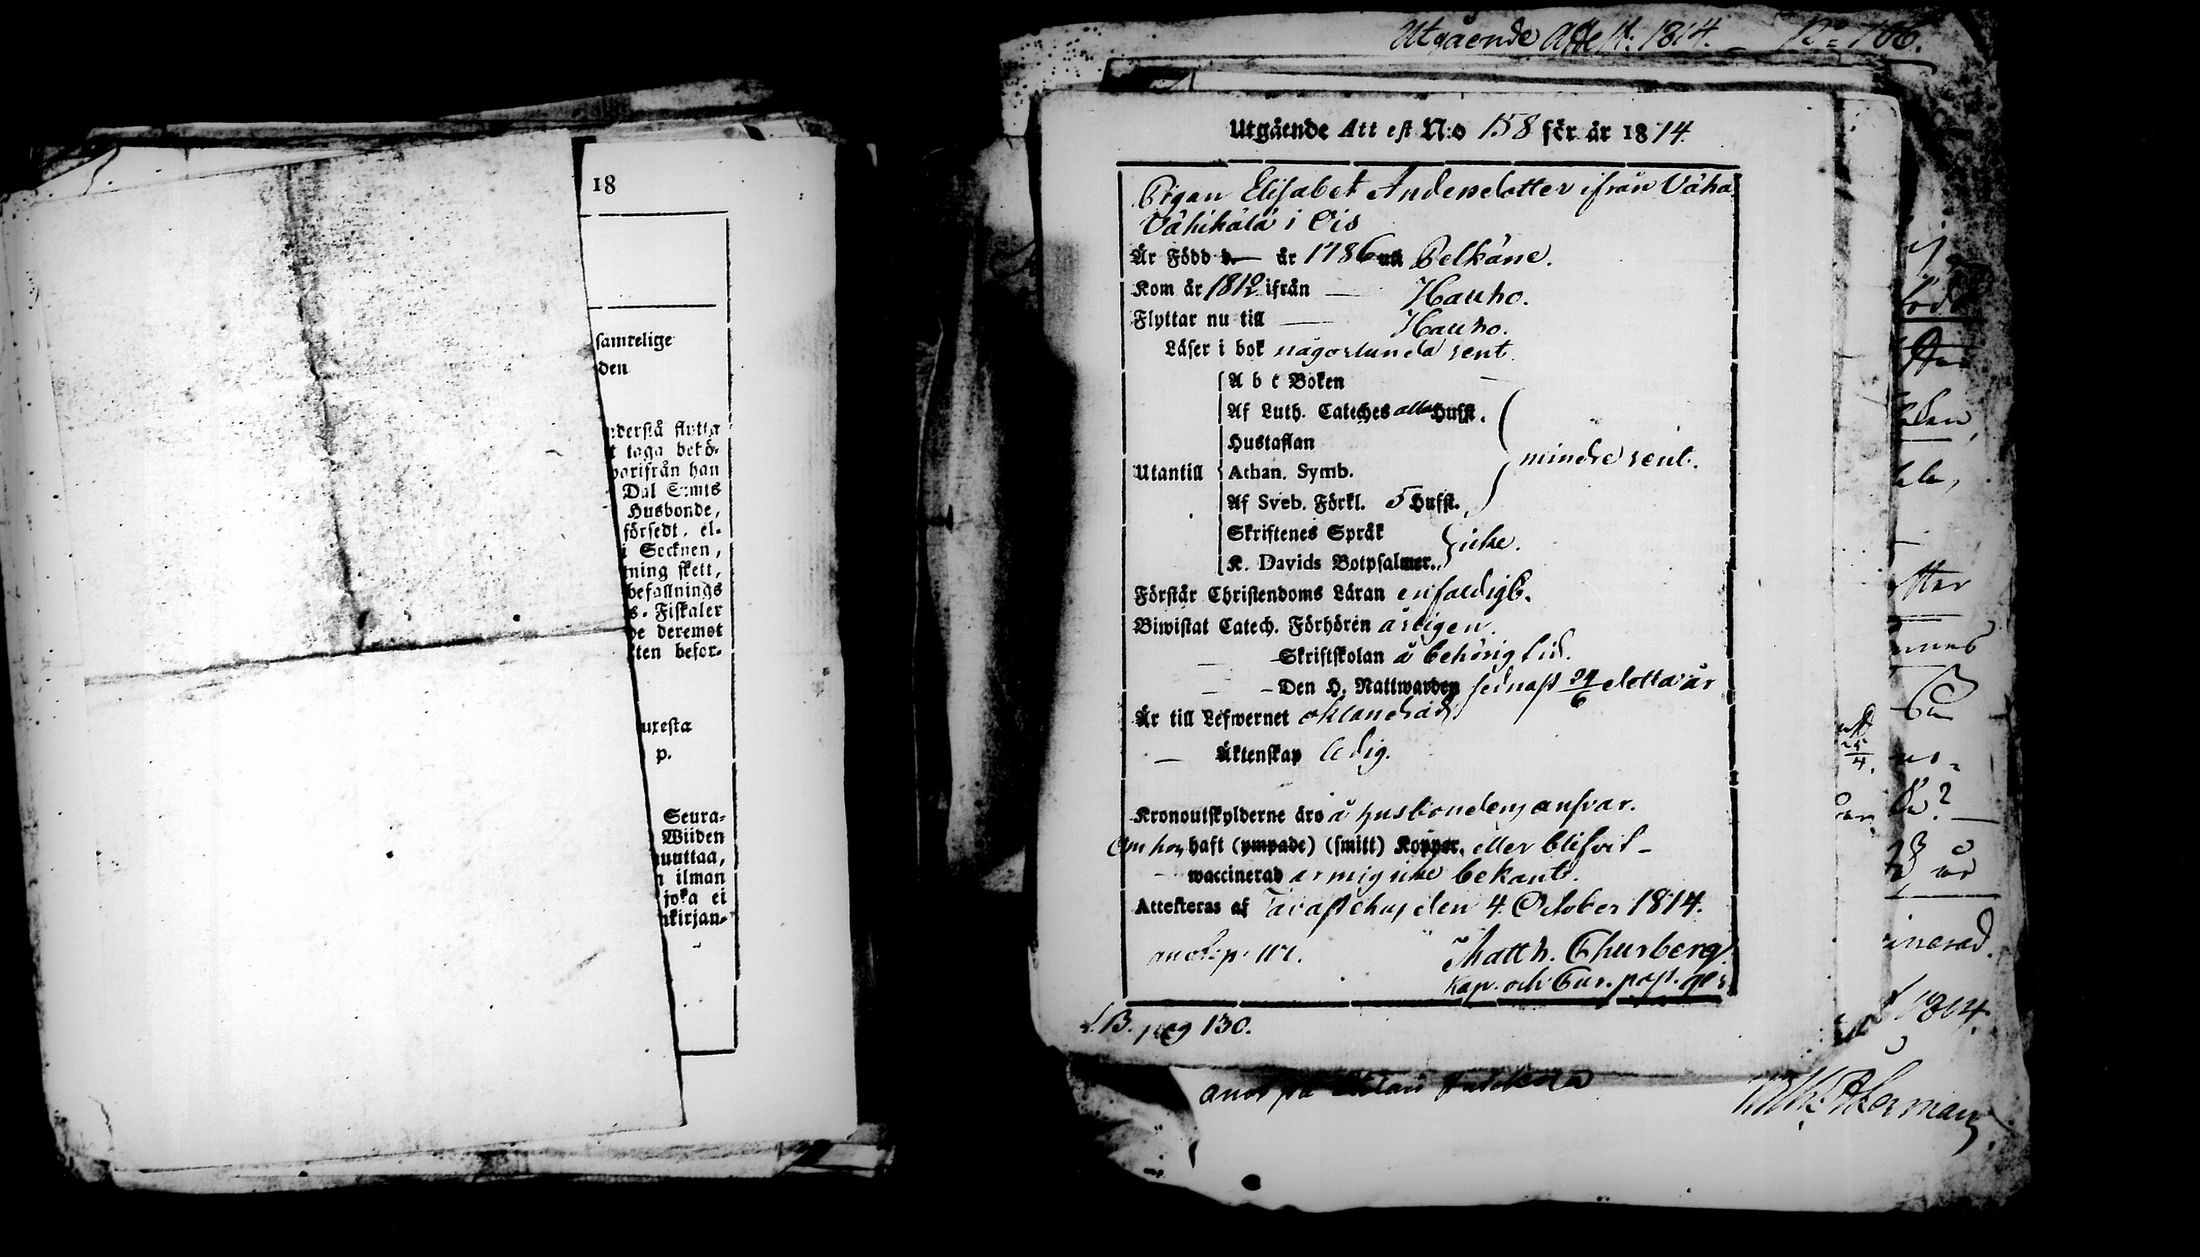 18
samtelige
den
derstå flytta
taga behö-
varifrån han
Dal S:mts
Husbonde,
försedt, el-
i Socknen,
ning skett,
befallnings
s- Fiskaler
de deremot
ten befor-
uxesta
p.
Seura-
Wiiden
uuttaa,
n ilman
joka ei
nkirjan-
Utgående Attest: 1814. - No 106.
Utgående Att est N:o 158 för år 1814.
Pigan Elisabet Andersdotter ifrån Vähä
Vähikälä i Ois
Är Född år 1786 uti Pelkäne.
Kom år 1812 ifrån — Hauho.
Flyttar nu till — Hauho.
Läser i bok någorlunda rent.
A b c Boken
Af Luth. Cateches alla Hufst.
Hustaflan
mindre rent.
Utantill Athan. Symb.
Af Sveb. Förkl. 5 Hufst.
Skriftenes Språk
icke.
K. Davids Botpsalmer.
Förstår Christendoms Läran enfaldigt.
Biwistat Catech. Förhören årligen.
— Skriftskolan å behörig tid.
— — Den H. Nattwarden sednast 24/6 detta år
Är till Lefwernet oklandrad,
— Äktenskap ledig.
Kronoutskylderne äro å husbondens ansvar.
Om hon haft (ympade) (smitt) Koppor, eller blifvit -
waccinerad är mig icke bekant.
Attesteras af Tavastehus den 4 October 1814.
Matth. Thurberg
Kap. och Cur. past.
L.B. pag 130.
ij
den,
tter
25/4.
år
inerad.
1814.
anot på
Åkerman